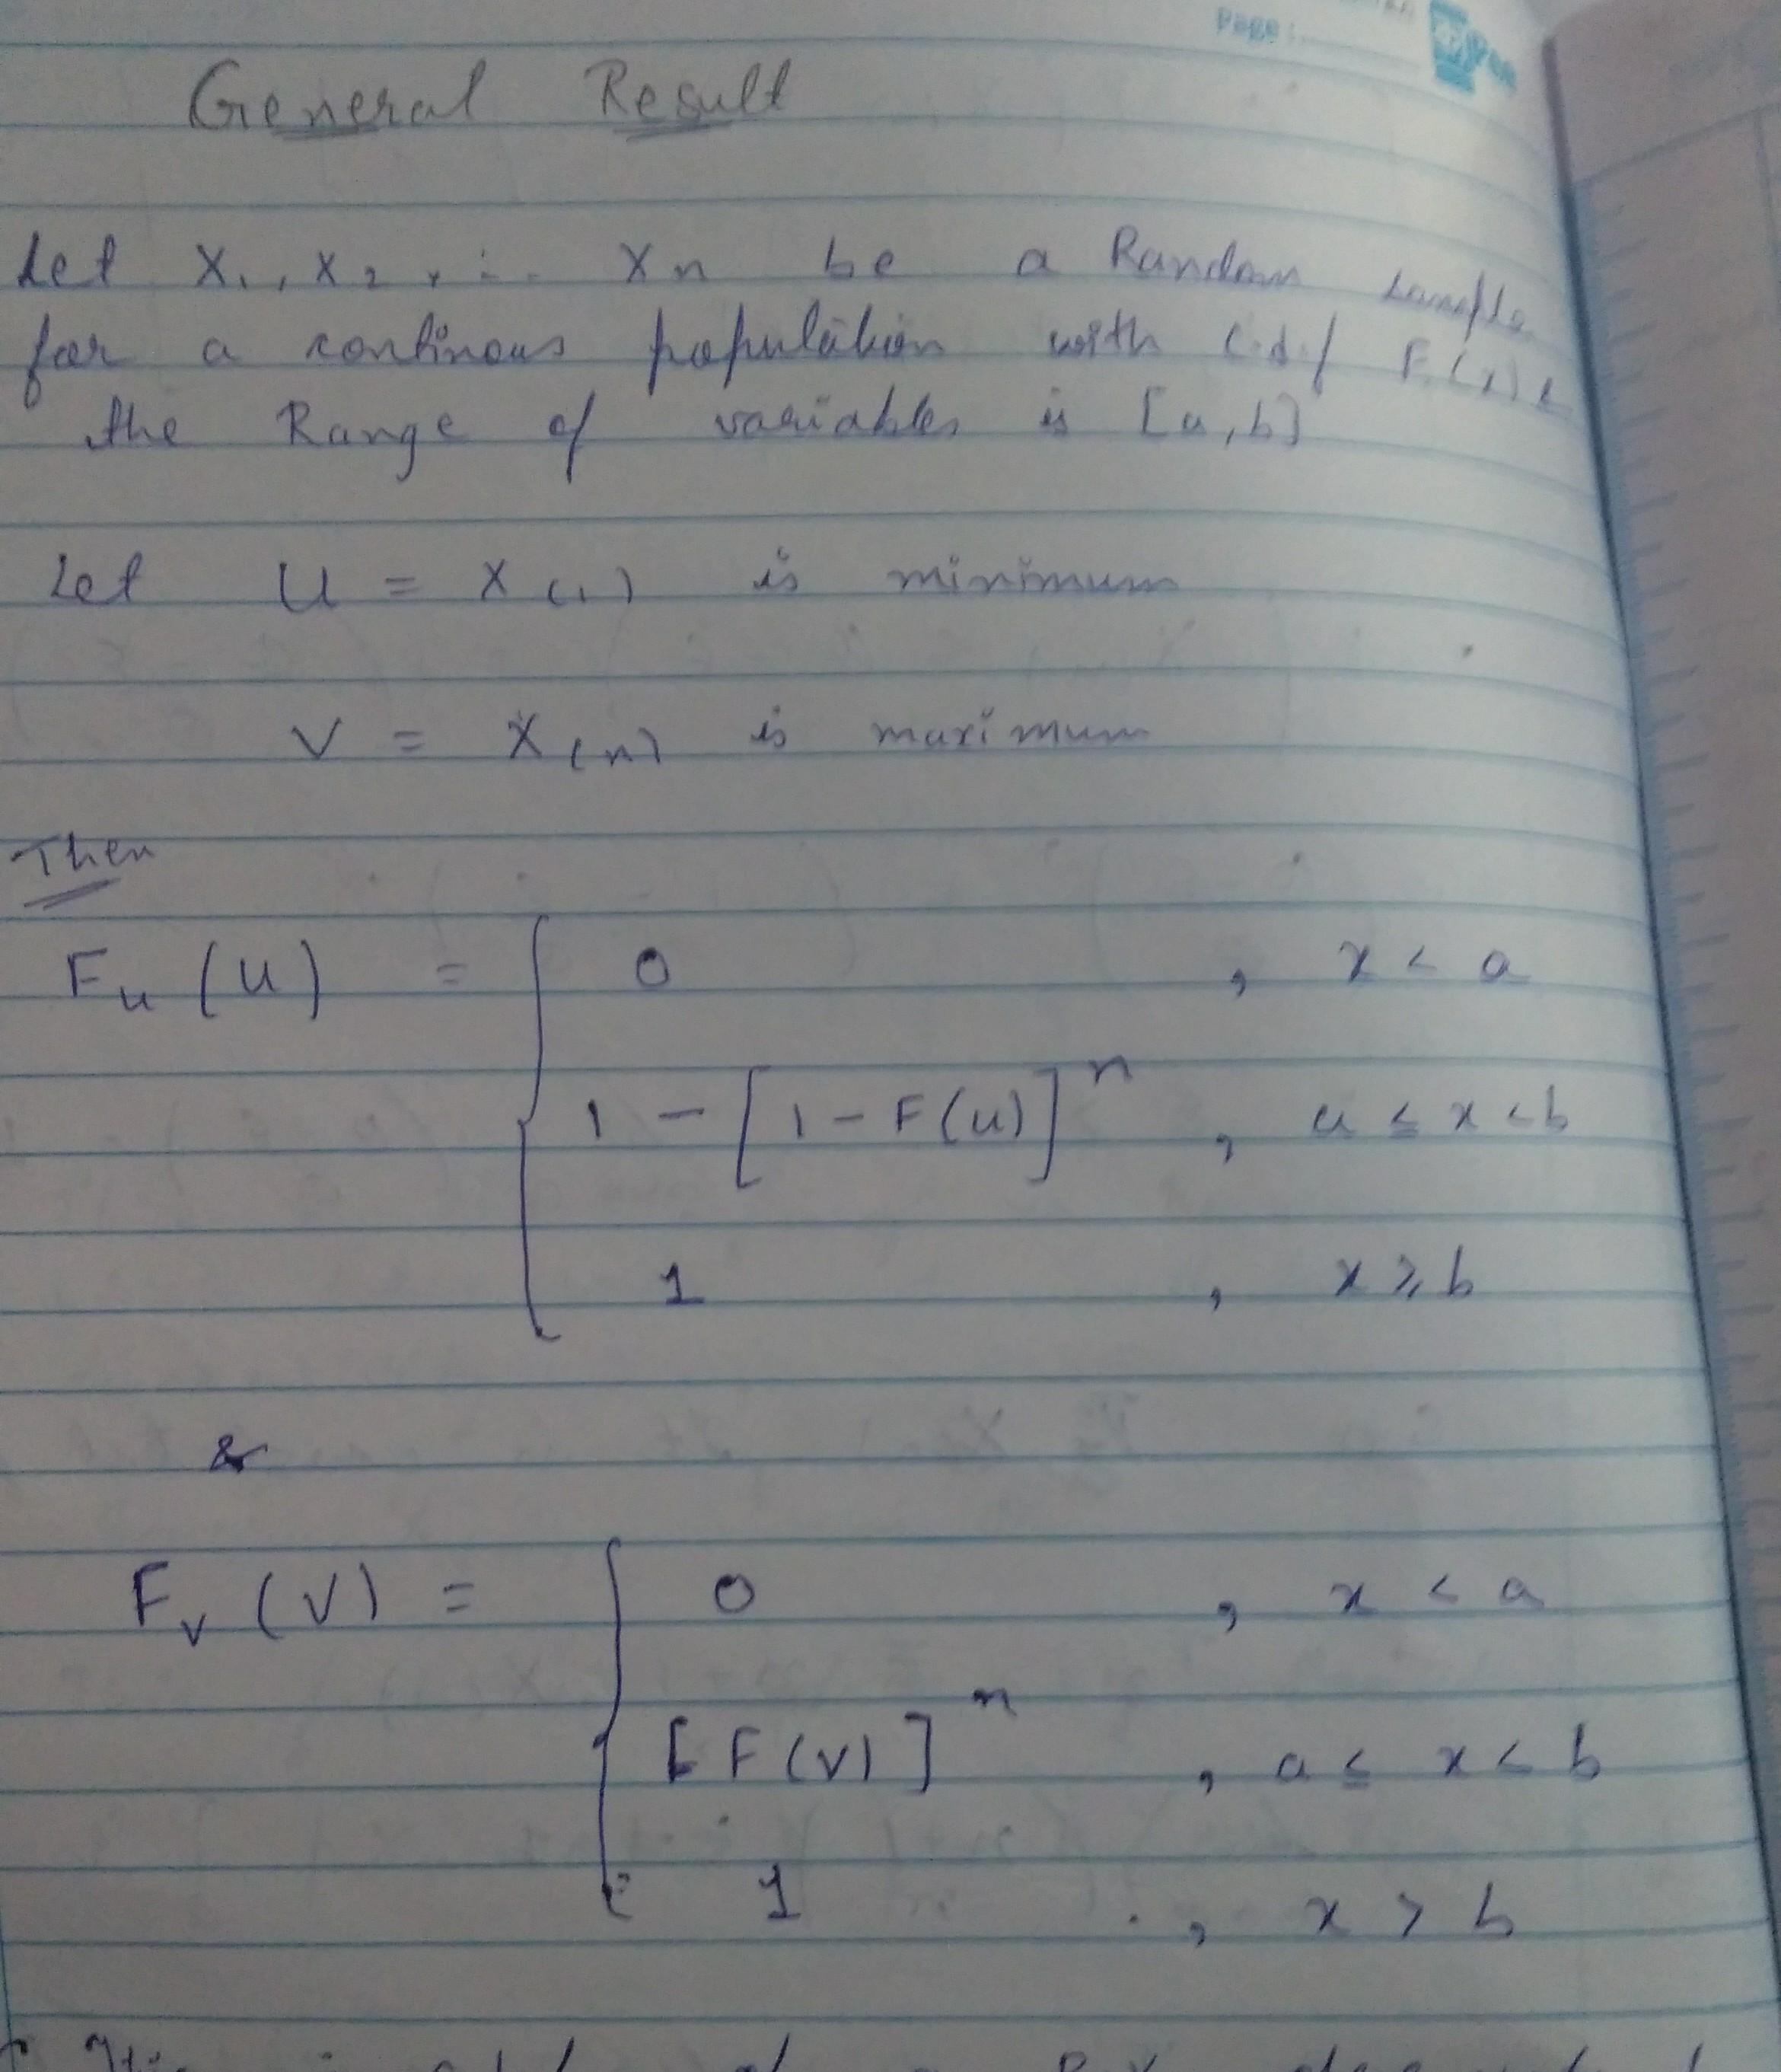 Page :
General Result
Let X1, X2, ... Xn be a Random sample
for a continous population with c.d.f F(x) &
the Range of variables is [a, b]
Let U = X(1) is minimum
V = X(n) is maximum
Then
Fu (u) = { 0 , x < a
1 - [1 - F(u)]^n , a ≤ x < b
1 , x ≥ b
&
Fv (v) = { 0 , x < a
[F(v)]^n , a ≤ x < b
1 , x > b